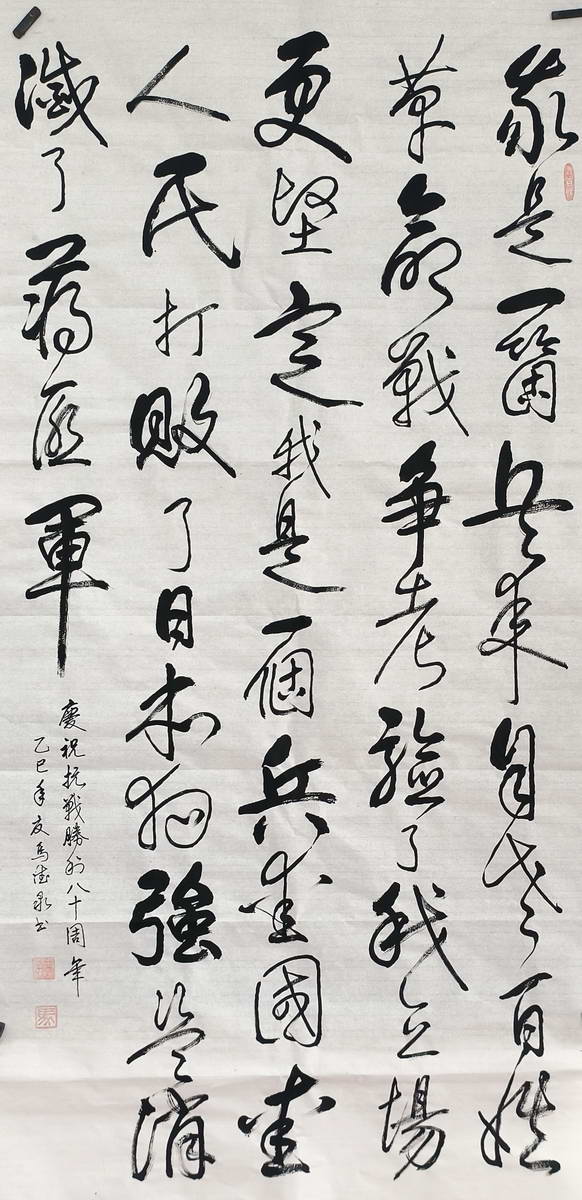 我是一箇兵来自老百姓
革命戰争考驗了我立場
更堅定我是一個兵愛國愛
人民打敗了日本狗強盗消
滅了蔣匪軍
慶祝抗戰勝利八十周年
乙巳年夏馬德泉书